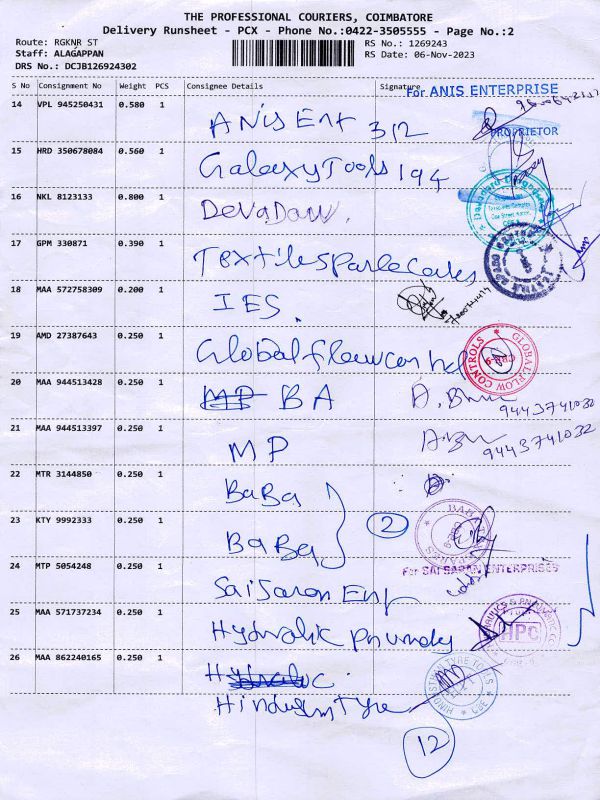 THE PROFESSIONAL COURIERS, COIMBATORE
Delivery Runsheet - PCX - Phone No.:0422-3505555 - Page No.:2
Route: RGKNR ST
Staff: ALAGAPPAN
DRS No.: DCJB126924302
RS No.: 1269243
RS Date: 06-Nov-2023
S No Consignment No Weight PCS Consignee Details Signature
For ANIS ENTERPRISE
14 VPL 945250431 0.580 1 Anis Ent 312
PROPRIETOR
15 HRD 350678084 0.560 1 Galaxy Tools 194
16 NKL 8123133 0.800 1
17 GPM 330871 0.390 1
18 MAA 572758309 0.200 1 IES.
19 AMD 27387643 0.250 1
GLOBAL FLOW CONTROLS
20 MAA 944513428 0.250 1 MP BA
9443741032
21 MAA 944513397 0.250 1 MP
9443741032
22 MTR 3144850 0.250 1 BaBa
23 KTY 9992333 0.250 1 BaBa
2
For SAI SARAN ENTERPRISES
24 MTP 5054248 0.250 1 Sai Saran Ent
25 MAA 571737234 0.250 1
HPC
26 MAA 862240165 0.250 1
HINDUSTHAN TYRE TOOLS CBE
12